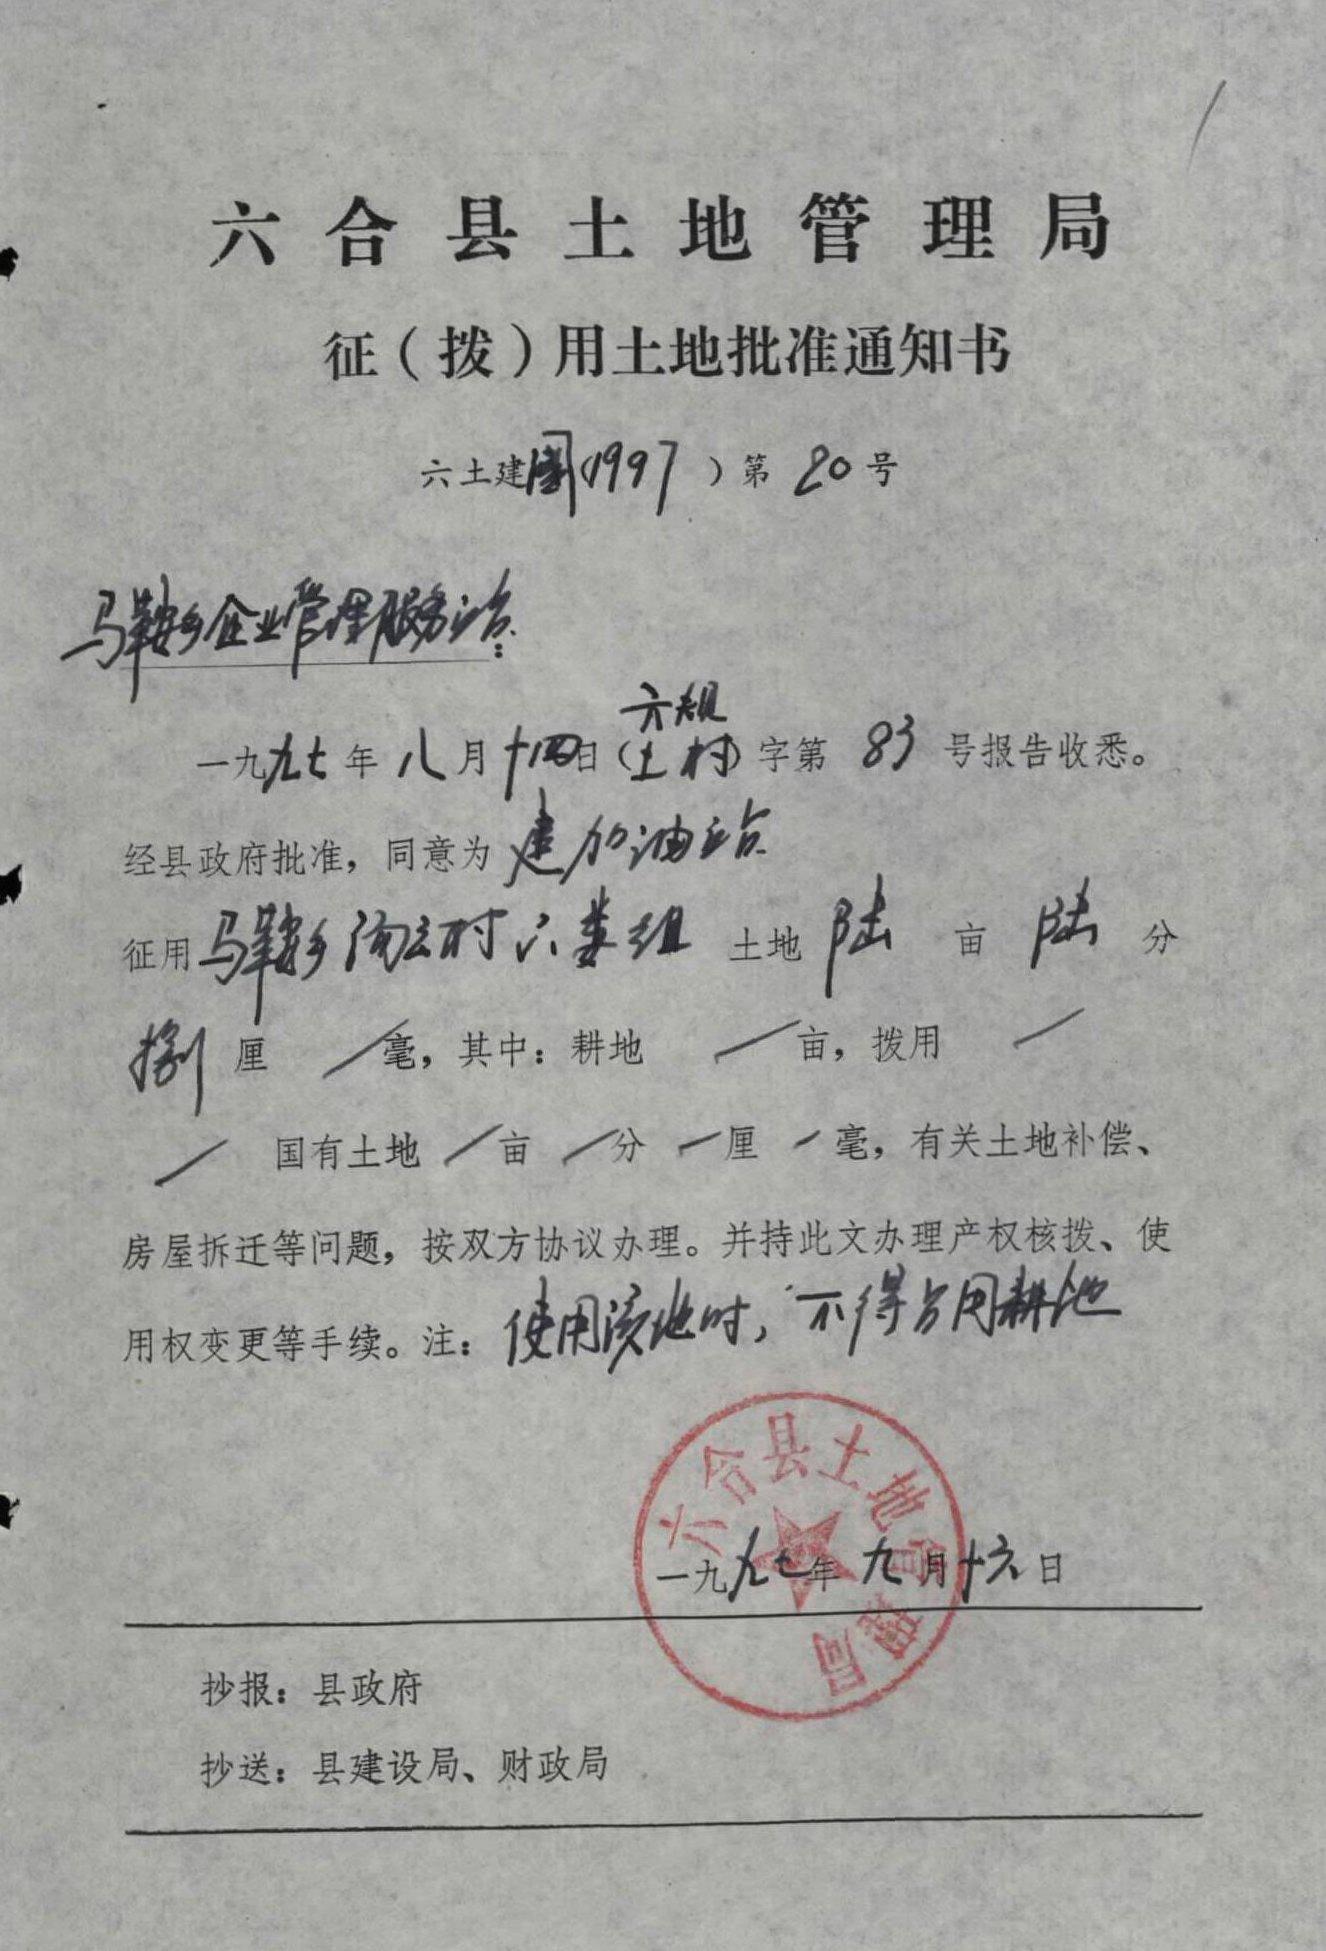 六合县土地管理局
征（拨）用土地批准通知书
六土建国（1997）第 20 号
马鞍乡企业管理服务站：
六规
一九九七年八月十四日（土村）字第 83 号报告收悉。
经县政府批准，同意为建加油站
征用马鞍乡陶云村六娄组 土地陆亩陆分
捌厘／毫，其中：耕地／亩，拨用／
／国有土地／亩／分／厘／毫，有关土地补偿、
房屋拆迁等问题，按双方协议办理。并持此文办理产权核拨、使
用权变更等手续。注：使用该地时，不得占用耕地
六合县土地管理局
一九九七年九月十六日
抄报：县政府
抄送：县建设局、财政局